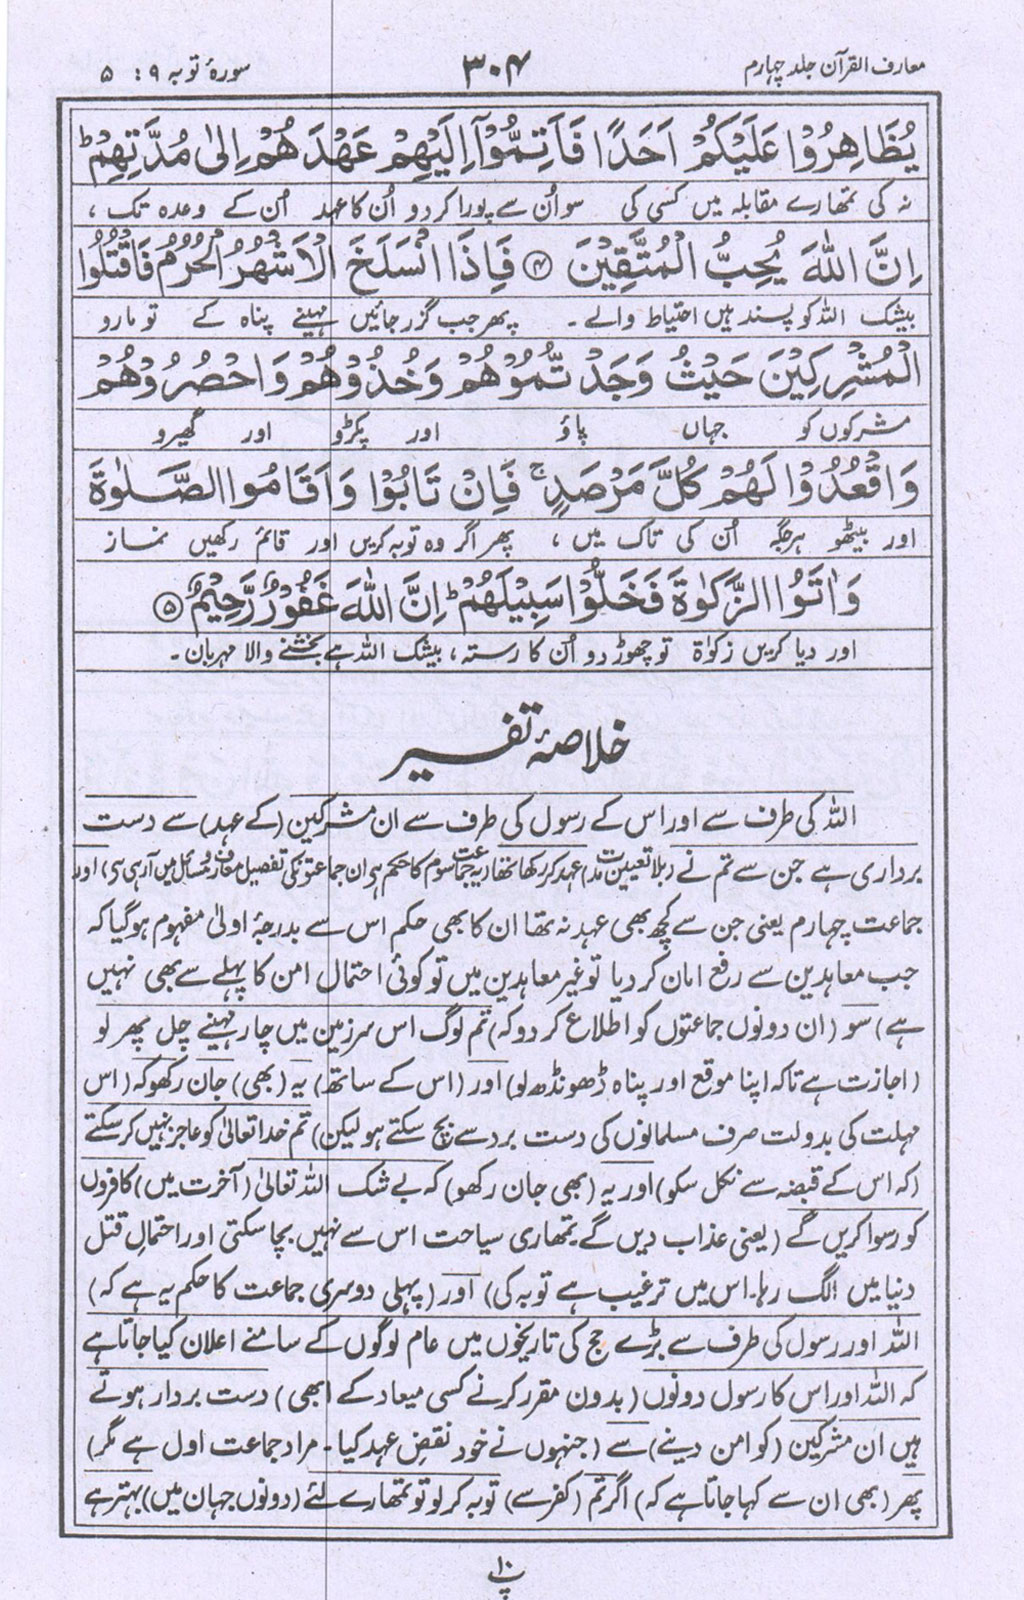 معارف القرآن جلد چہارم
۳۰۴
سورۂ توبہ ۹ : ۵
يُظَاهِرُوْا عَلَيْكُمْ اَحَدًا فَاَتِمُّوْٓا اِلَيْهِمْ عَهْدَهُمْ اِلٰى مُدَّتِهِمْ ؕ
نہ کی تمھارے مقابلہ میں کسی کی سو اُن سے پورا کر دو اُن کا عہد اُن کے وعدہ تک ،
اِنَّ اللّٰهَ يُحِبُّ الْمُتَّقِيْنَ ﴿۴﴾ فَاِذَا انْسَلَخَ الْاَشْهُرُ الْحُرُمُ فَاقْتُلُوا
بیشک اللہ کو پسند ہیں احتیاط والے ۔ پھر جب گزر جائیں مہینے پناہ کے تو مارو
الْمُشْرِكِيْنَ حَيْثُ وَجَدْتُّمُوْهُمْ وَخُذُوْهُمْ وَاحْصُرُوْهُمْ
مشرکوں کو جہاں پاؤ اور پکڑو اور گھیرو
وَاقْعُدُوْا لَهُمْ كُلَّ مَرْصَدٍ ۚ فَاِنْ تَابُوْا وَاَقَامُوا الصَّلٰوةَ
اور بیٹھو ہر جگہ اُن کی تاک میں ، پھر اگر وہ توبہ کریں اور قائم رکھیں نماز
وَاٰتَوُا الزَّكٰوةَ فَخَلُّوْا سَبِيْلَهُمْ ؕ اِنَّ اللّٰهَ غَفُوْرٌ رَّحِيْمٌ ﴿۵﴾
اور دیا کریں زکوٰۃ تو چھوڑ دو اُن کا رستہ ، بیشک اللہ ہے بخشنے والا مہربان ۔
خلاصۂ تفسیر
اللہ کی طرف سے اور اس کے رسول کی طرف سے ان مشرکین (کے عہد) سے دست
برداری ہے جن سے تم نے (بلا تعیین مدت) عہد کر رکھا تھا (یہ جماعت سوم کا حکم ہی ان جماعتونکی تفصیل معارف ومسائل میں آرہی ہی) اور
جماعت چہارم یعنی جن سے کچھ بھی عہد نہ تھا ان کا بھی حکم اس سے بدرجۂ اولیٰ مفہوم ہوگیا کہ
جب معاہدین سے رفع امان کر دیا تو غیر معاہدین میں تو کوئی احتمال امن کا پہلے سے بھی نہیں
ہے) سو (ان دونوں جماعتوں کو اطلاع کر دو کہ) تم لوگ اس سرزمین میں چار مہینے چل پھر لو
(اجازت ہے تاکہ اپنا موقع اور پناہ ڈھونڈھ لو) اور (اس کے ساتھ) یہ (بھی) جان رکھو کہ (اس
مہلت کی بدولت صرف مسلمانوں کی دست برد سے بچ سکتے ہو لیکن) تم خدا تعالیٰ کو عاجز نہیں کر سکتے
(کہ اس کے قبضہ سے نکل سکو) اور یہ (بھی جان رکھو) کہ بے شک اللہ تعالیٰ (آخرت میں) کافروں
کو رسوا کریں گے (یعنی عذاب دیں گے تمھاری سیاحت اس سے نہیں بچا سکتی اور احتمالِ قتل
دنیا میں الگ رہا۔ اس میں ترغیب ہے توبہ کی) اور (پہلی دوسری جماعت کا حکم یہ ہے کہ)
اللہ اور رسول کی طرف سے بڑے حج کی تاریخوں میں عام لوگوں کے سامنے اعلان کیا جاتا ہے
کہ اللہ اور اس کا رسول دونوں (بدون مقرر کرنے کسی میعاد کے ابھی) دست بردار ہوتے
ہیں ان مشرکین (کو امن دینے) سے (جنہوں نے خود نقضِ عہد کیا۔ مراد جماعت اول ہے مگر)
پھر (بھی ان سے کہا جاتا ہے کہ) اگر تم (کفر سے) توبہ کر لو تو تمھارے لئے (دونوں جہان میں) بہتر ہے
پ ۱۰